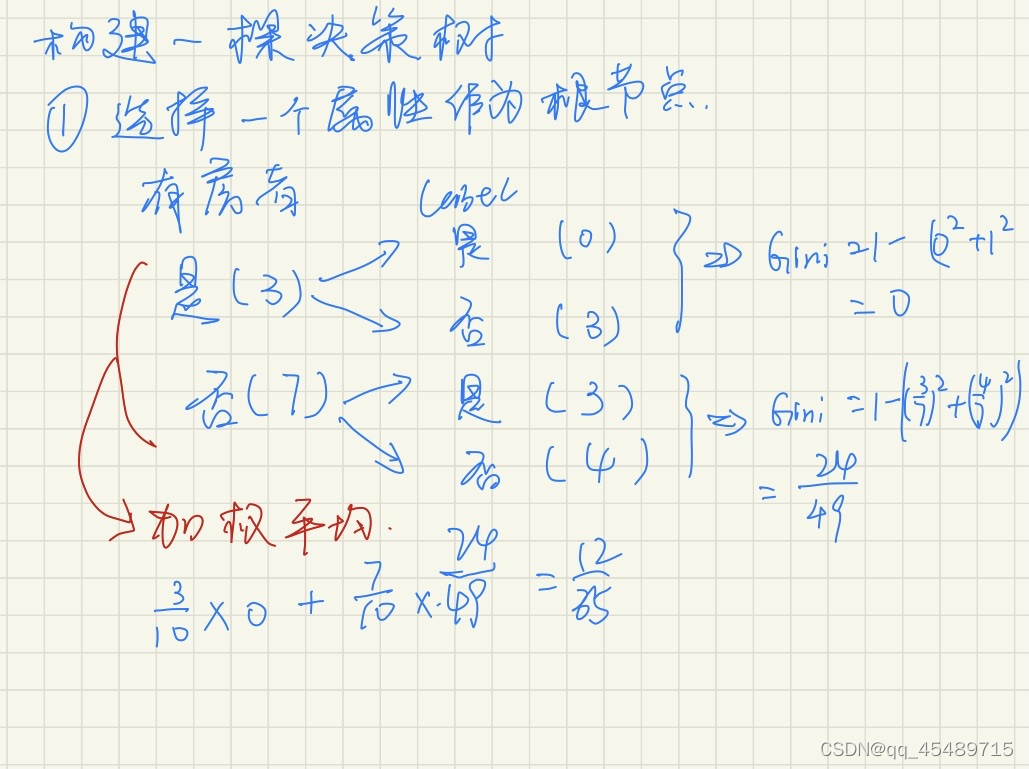 构建一棵决策树
① 选择一个属性作为根节点.
有房者 Label
是 (3) 是 (0) ⇒ Gini = 1 - (0² + 1²
否 (3) = 0
否 (7) 是 (3) ⇒ Gini = 1 - ((3/7)² + (4/7)²)
否 (4) = 24/49
加权平均.
3/10 × 0 + 7/10 × 24/49 = 12/35
CSDN@qq_45489715